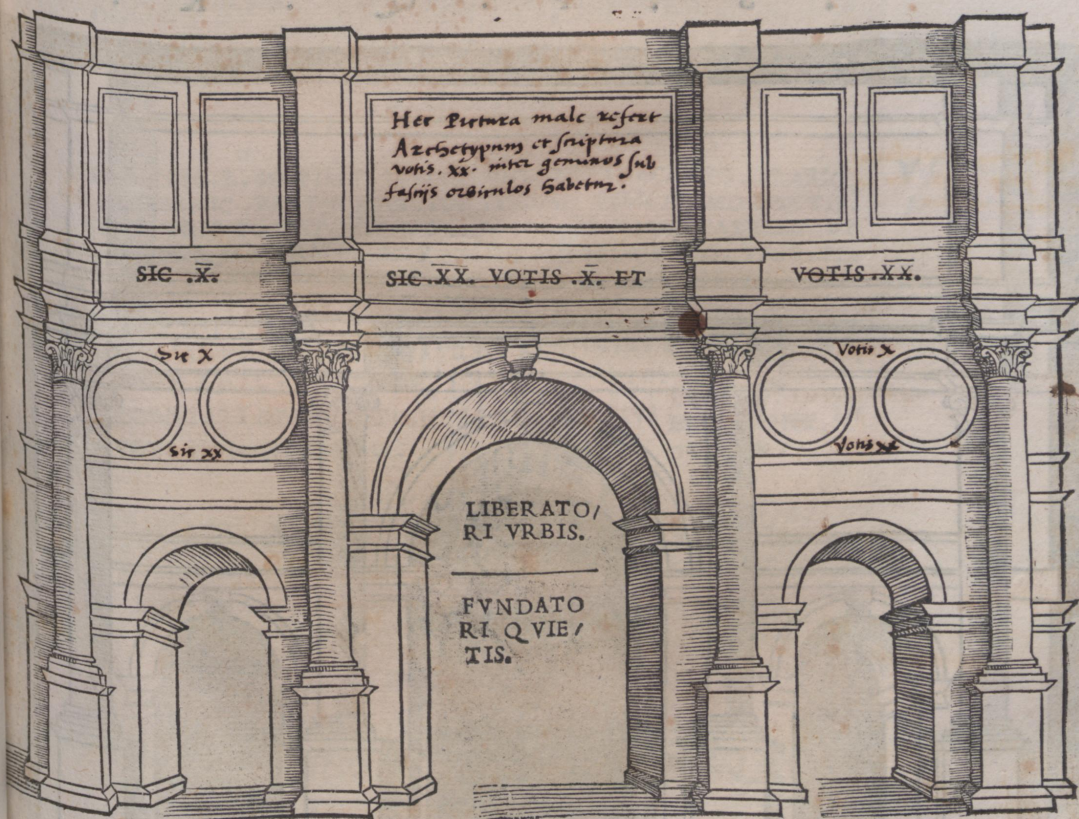 Hec Pictura male refert
Archetypum et scriptura
votis . xx. inter geminos sub
fascijs orbiculos habetur.
SIC .X̅.
SIC X̅X̅. VOTIS .X̅. ET
VOTIS .X̅X̅.
Sic X
Votis X
Sic xx
Votis xx
LIBERATO/
RI VRBIS.
FVNDATO
RI QVIE/
TIS.